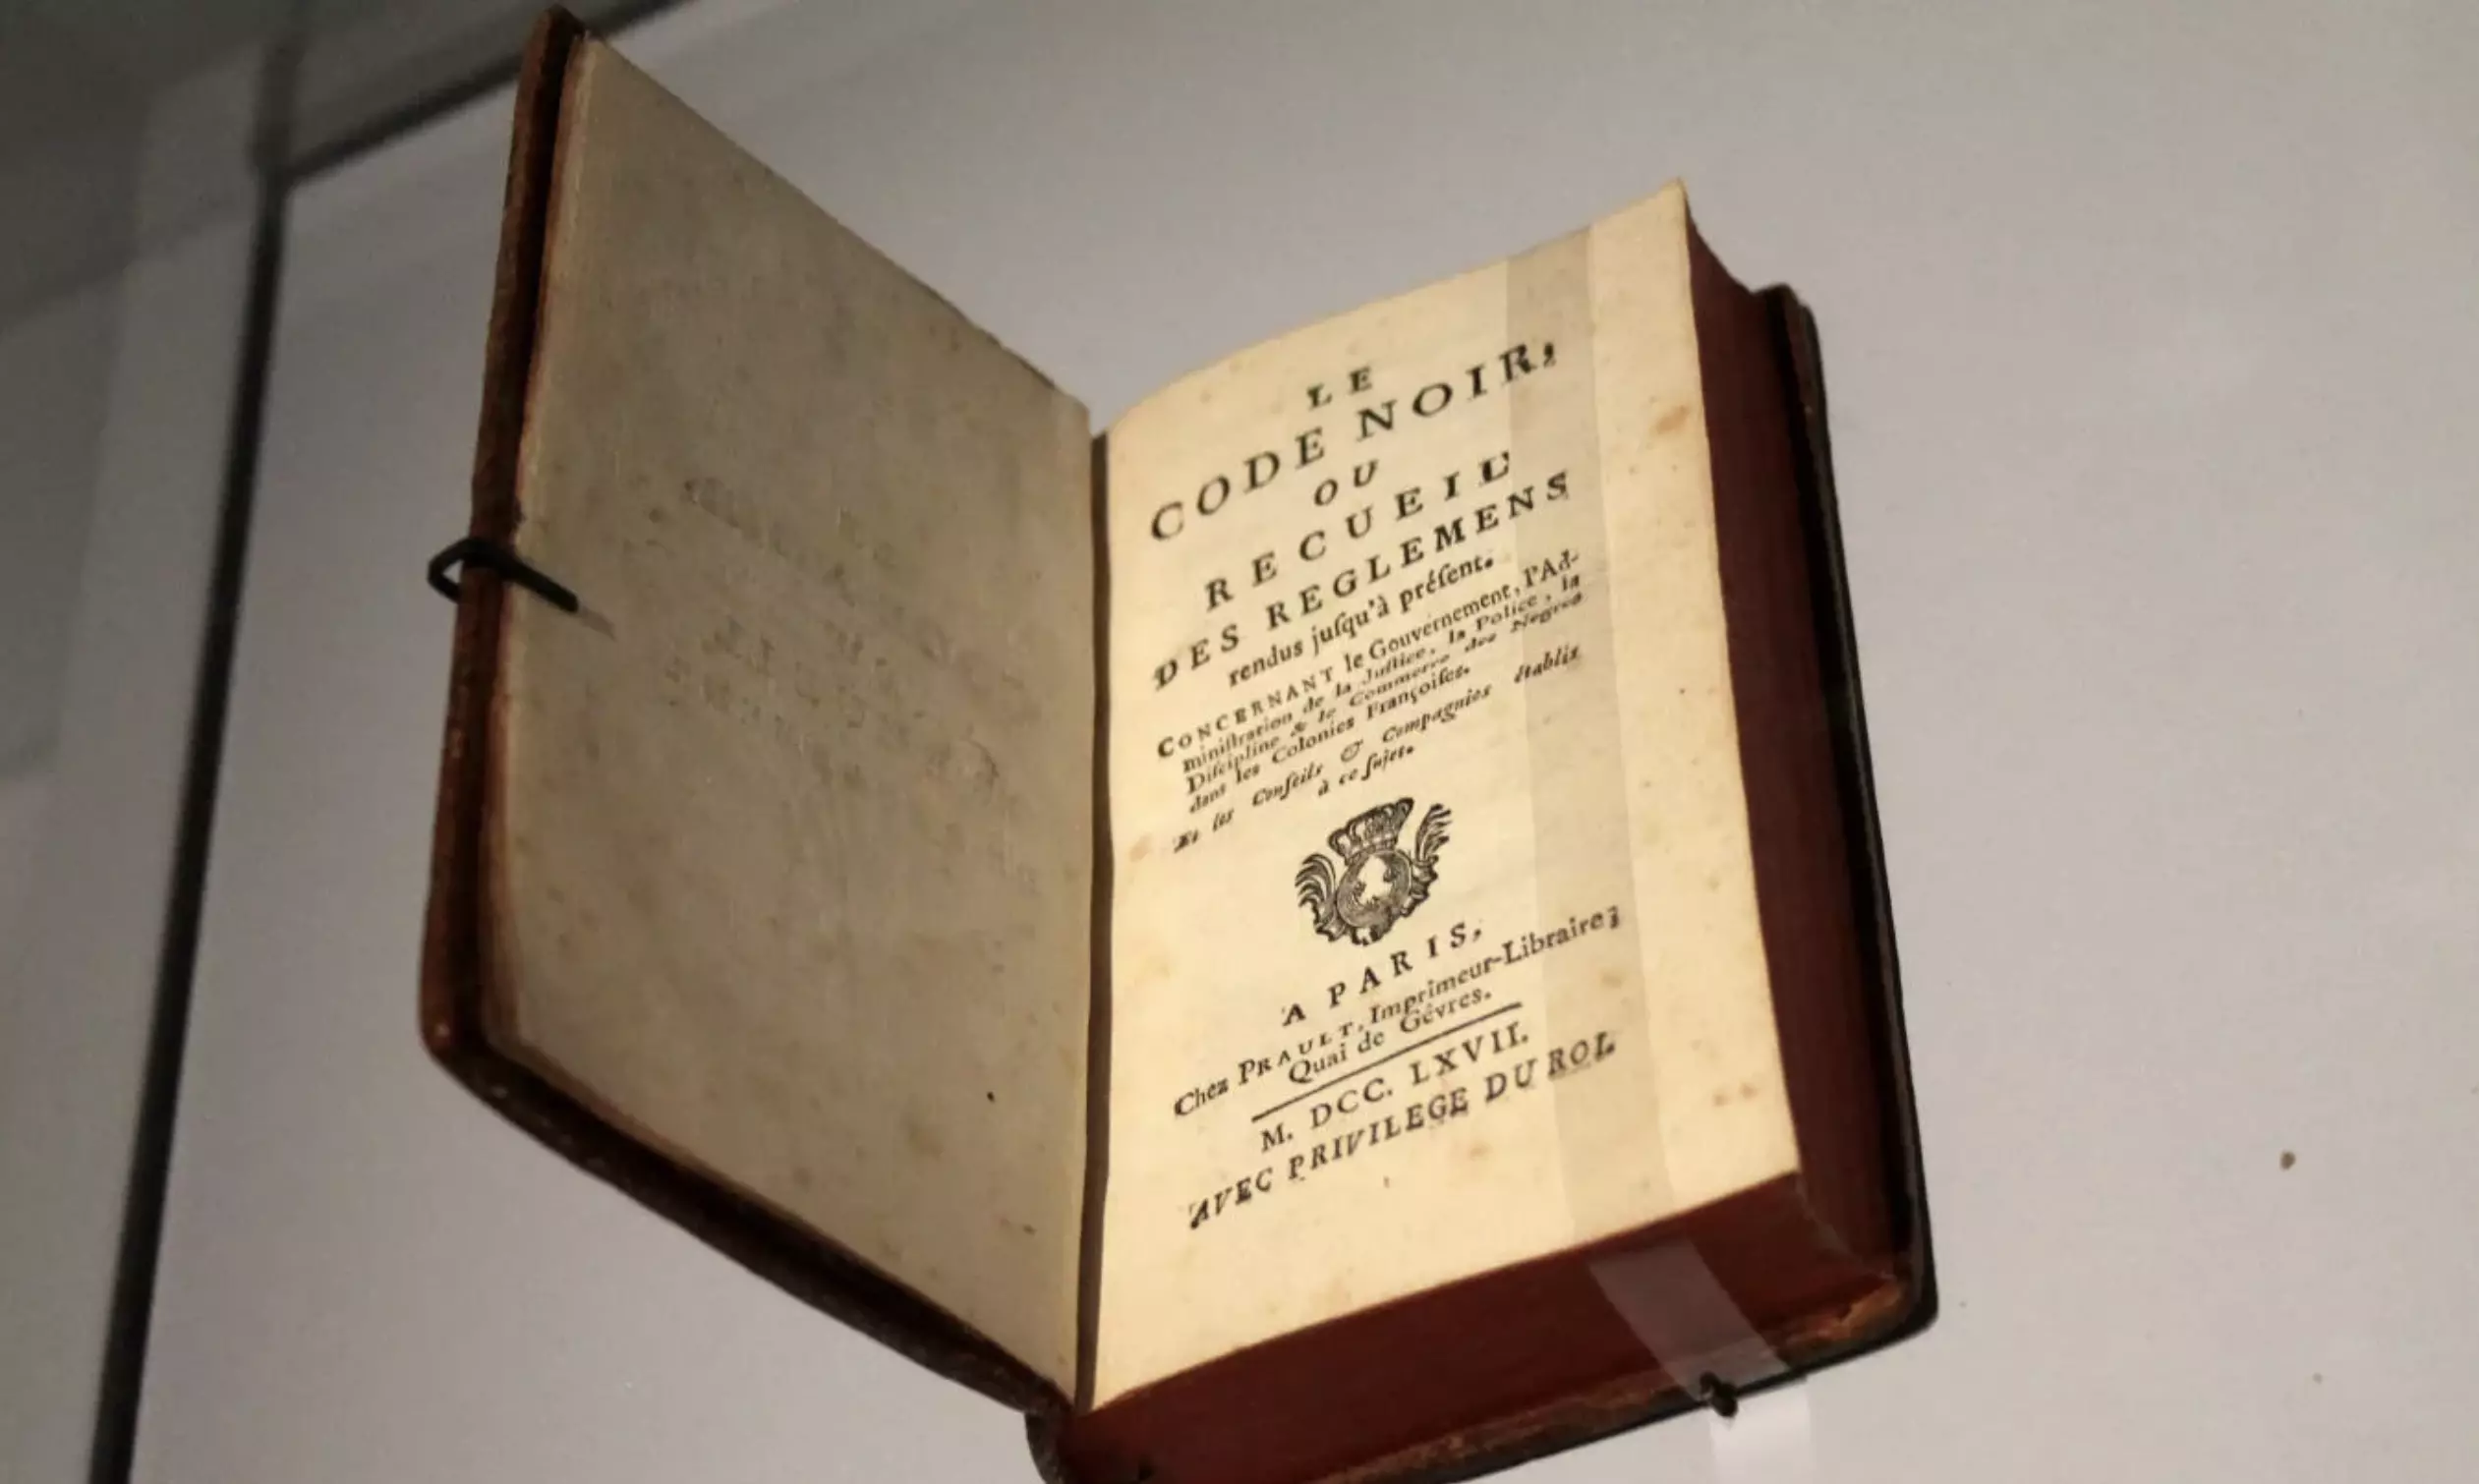 LE
CODE NOIR,
OU
RECUEIL
DES REGLEMENS
rendus juſqu'à préſent.
CONCERNANT le Gouvernement, l'Ad-
miniſtration de la Juſtice, la Police, la
Diſcipline & le Commerce des Negres
dans les Colonies Françoiſes.
Et les Conſeils & Compagnies établis
à ce ſujet.
A PARIS,
Chez PRAULT, Imprimeur-Libraire,
Quai de Gêvres.
M. DCC. LXVII.
AVEC PRIVILEGE DU ROI.